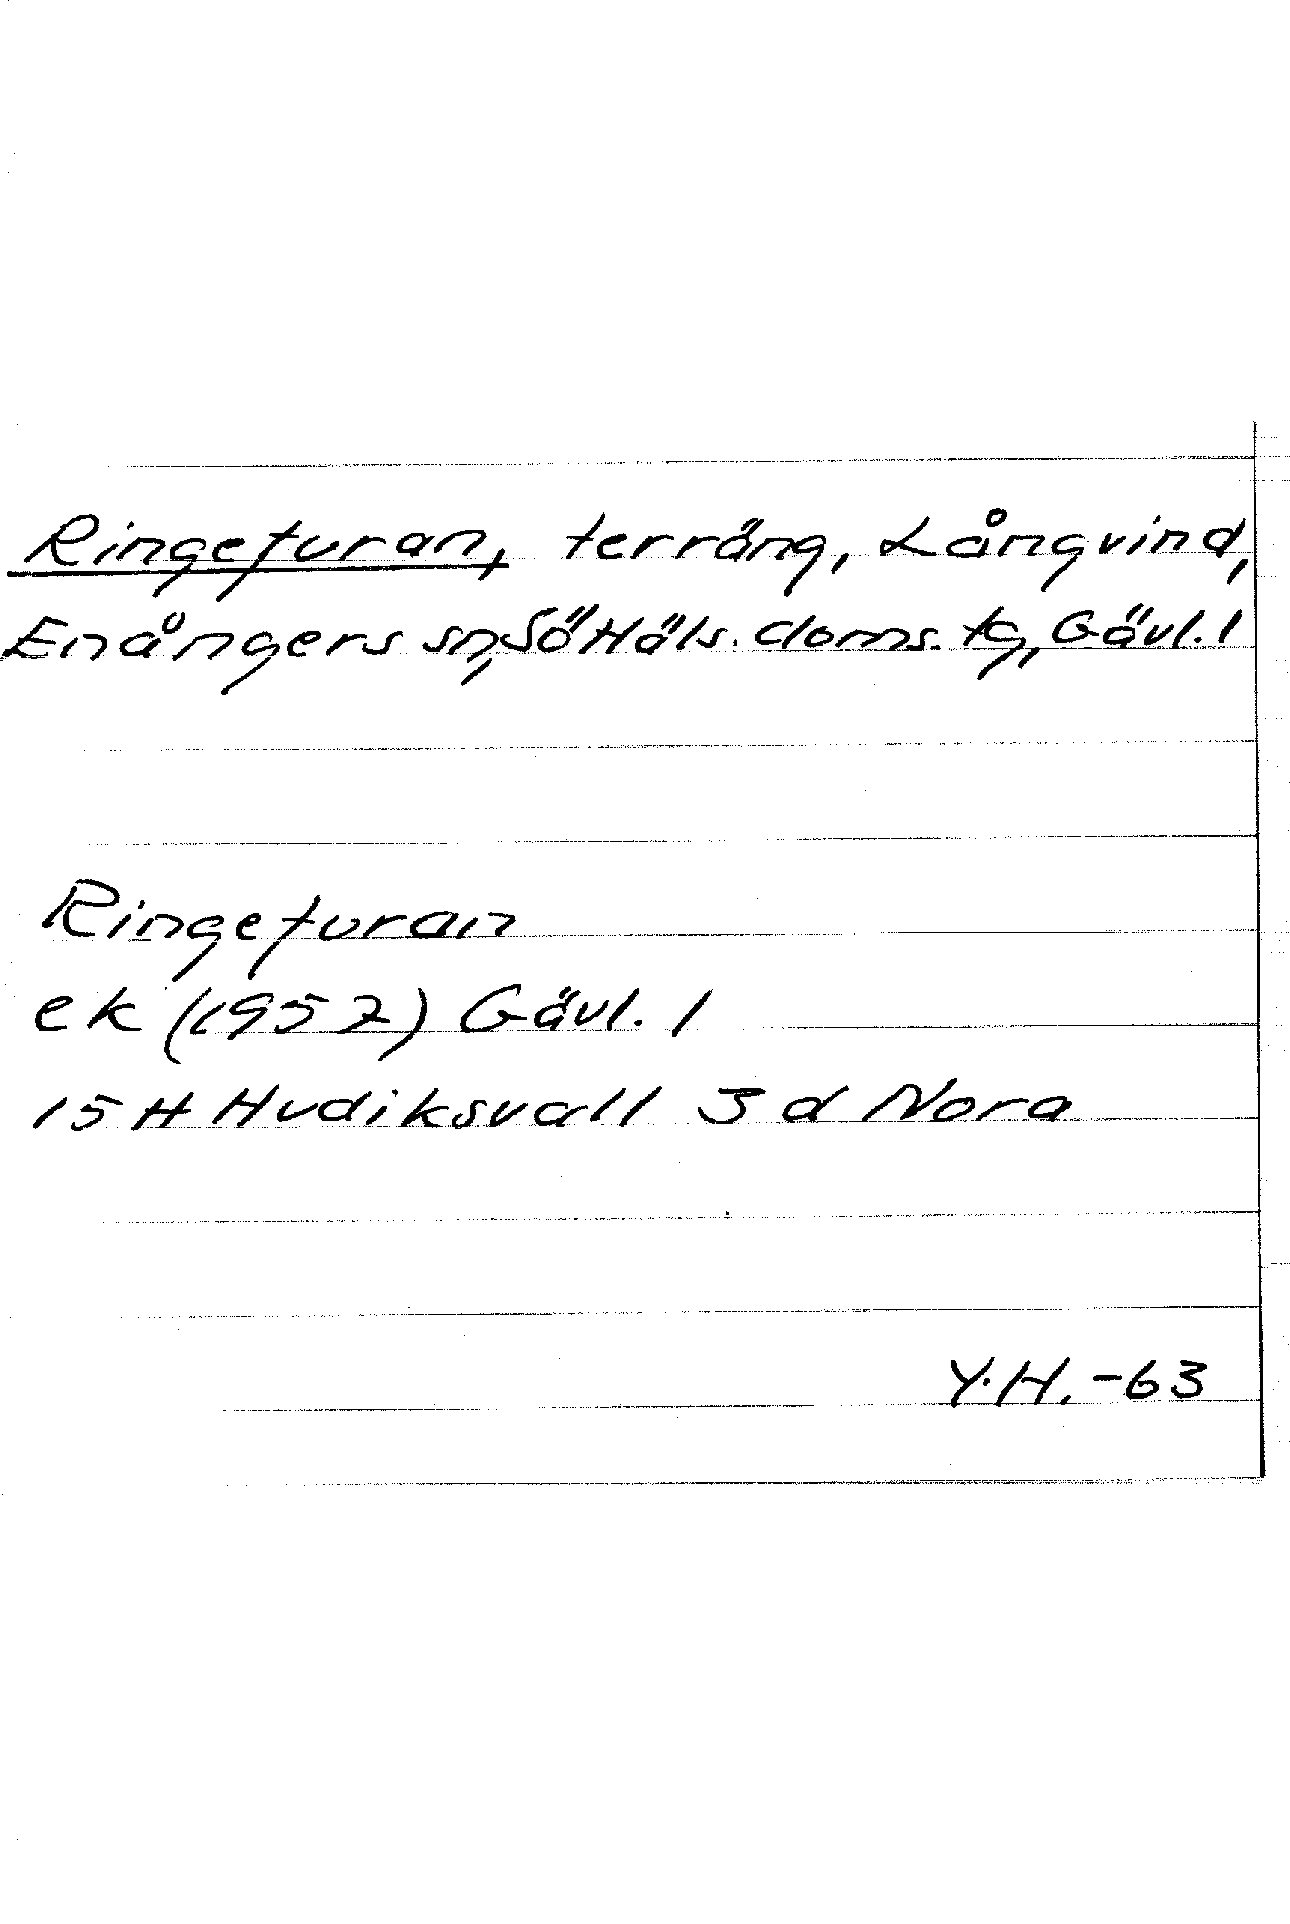 Ringefuran, terräng, Långvind,
Enångers sn, Sö Häls. doms. tg, Gävl. l
Ringefuran
ek (1952) Gävl. l
15 H Hudiksvall 3 d Nora
Y.H. -63